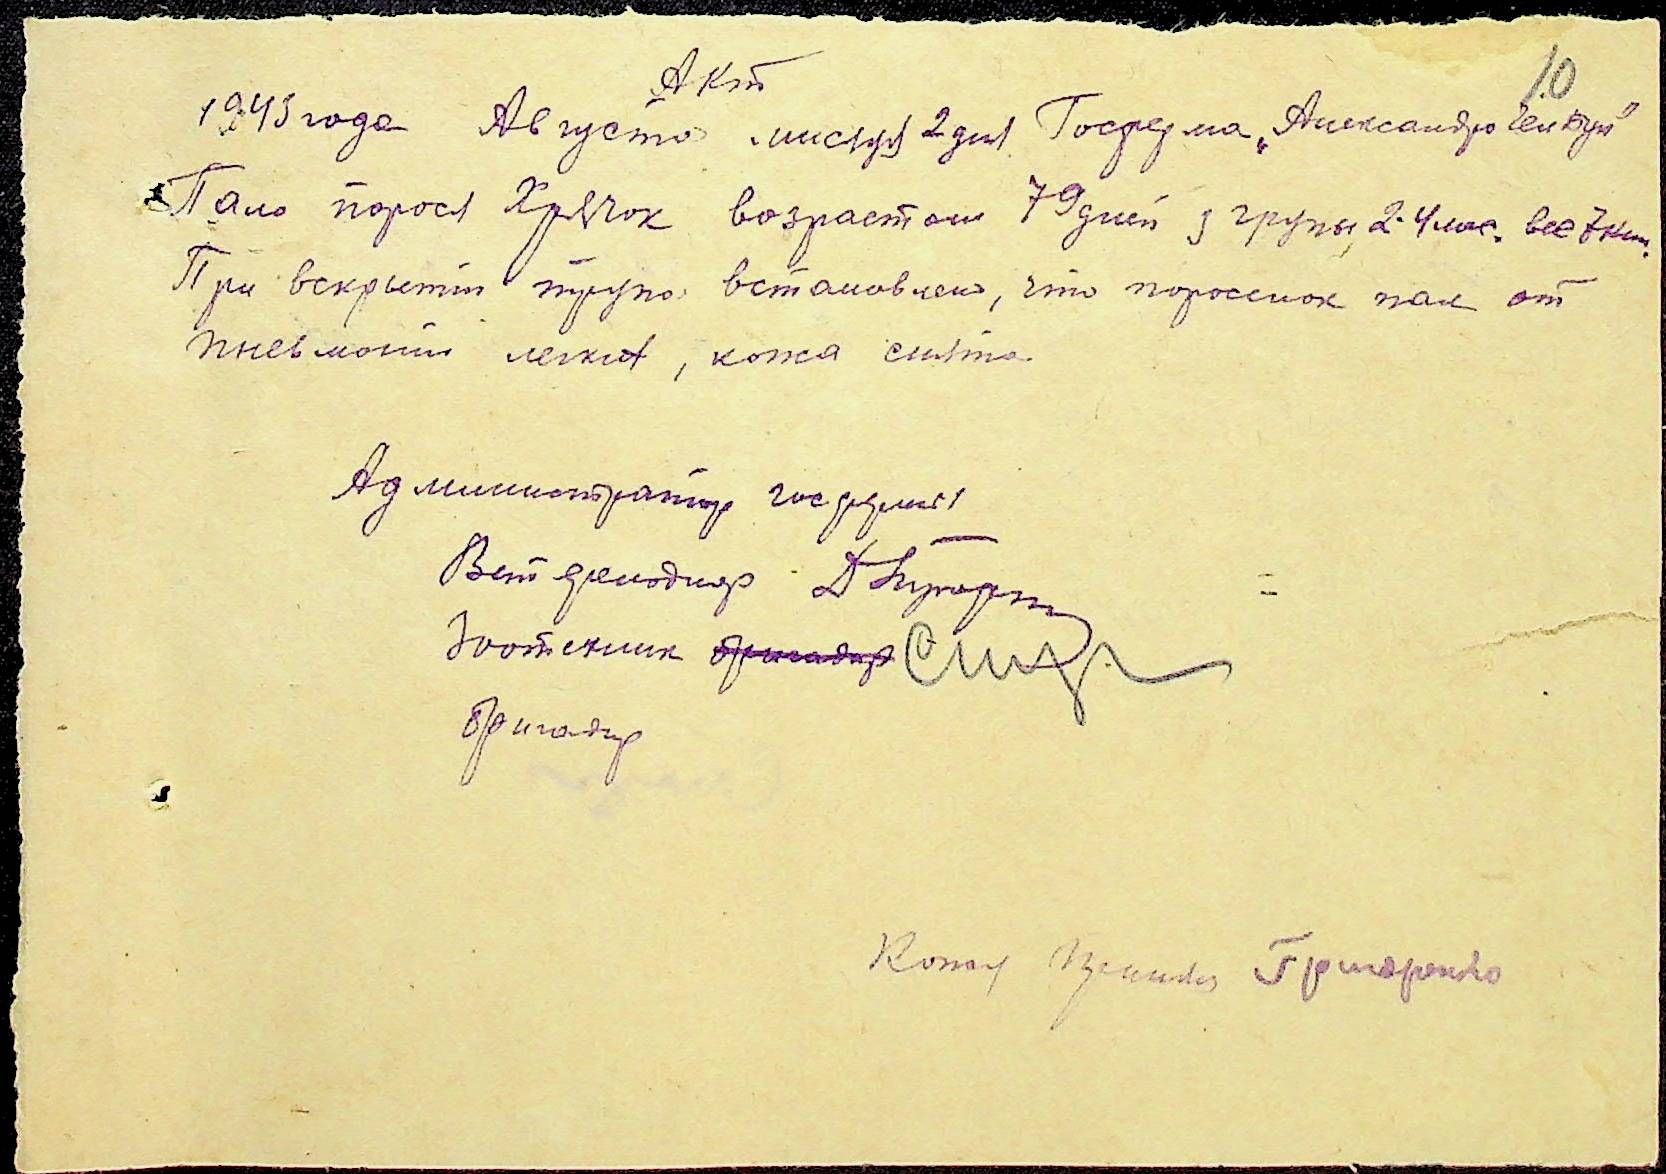 10
Акт
1943 года Августа мисяця 2 дня Госферма „Александро
Пало порося Хрячок возрастом 79 дней з групы 2-4 мес. вес 7 кил.
При вскрытии трупа встановлено, что поросенок пал от
пневмонии легких, кожа снята
Администратор госфермы
Вет фельдшер
Зоотехник бригадир
бригадир
Кожу Григоренко